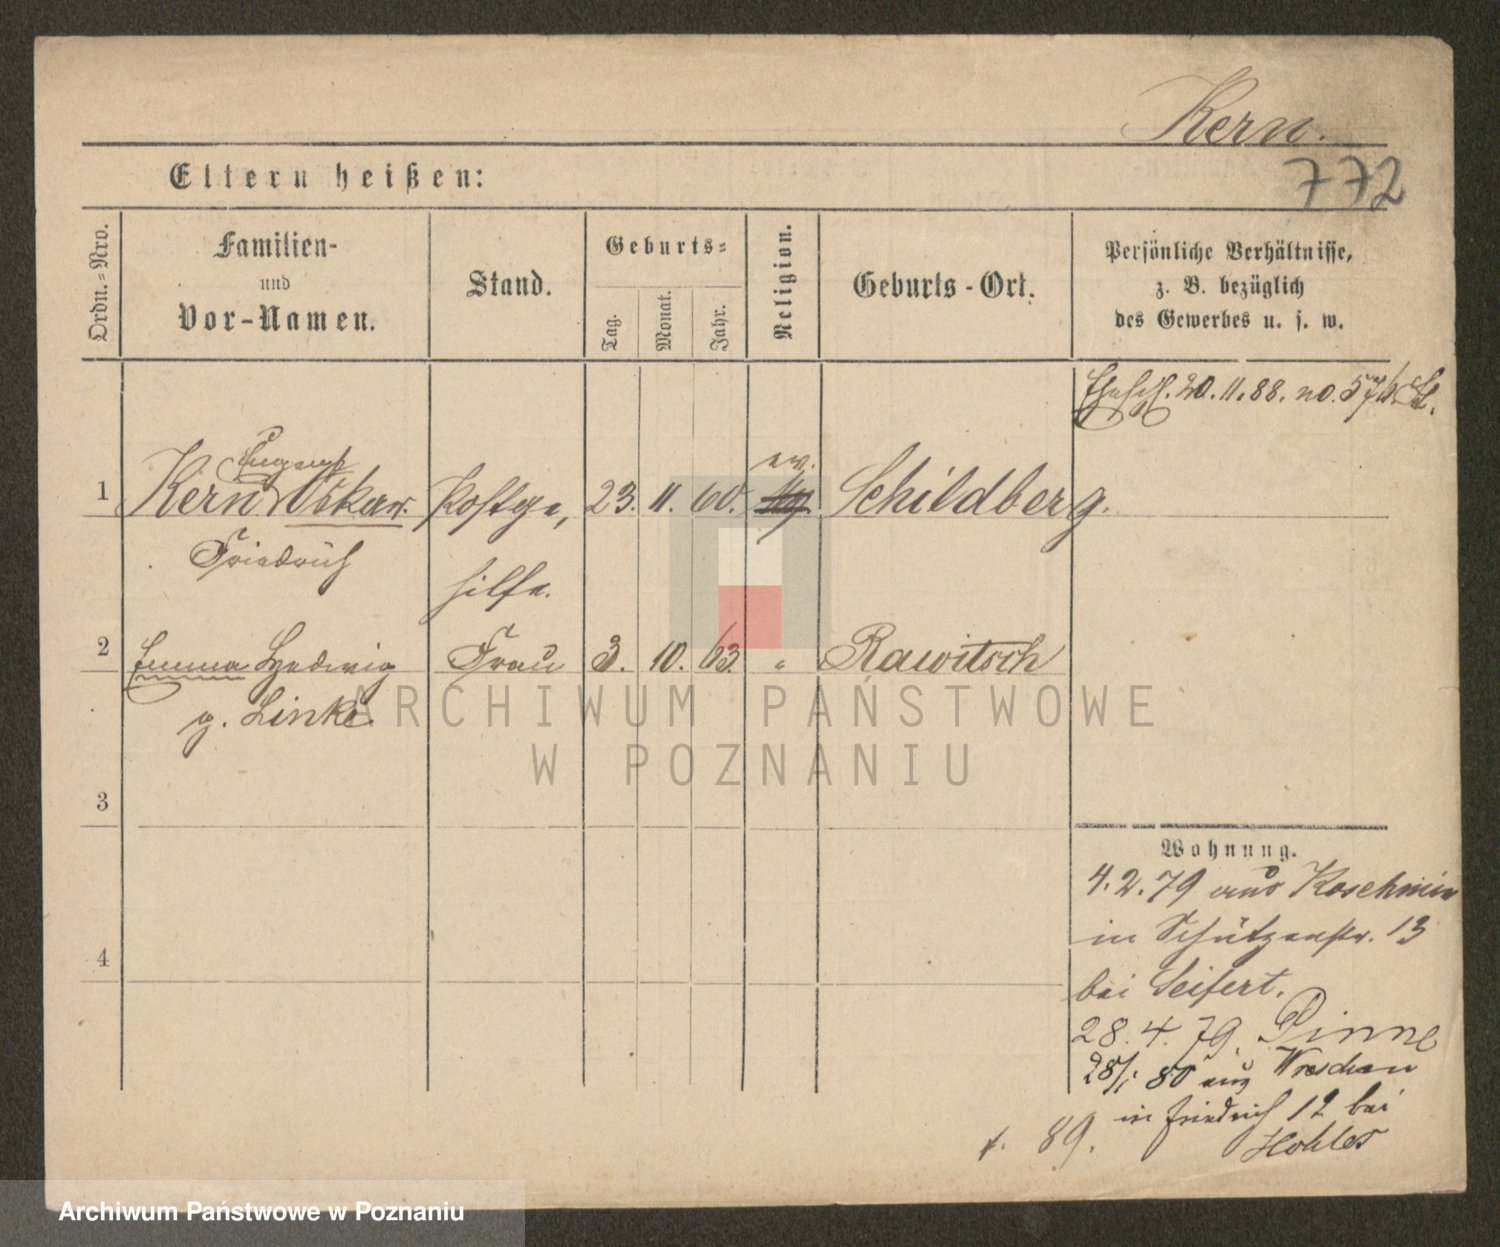 Kern.
772
Eltern heißen:
Ordn.=Nro.
Familien-
und
Vor-Namen.
Stand.
Geburts=
Tag.
Monat.
Jahr.
Religion.
Geburts-Ort.
Persönliche Verhältnisse,
z. B. bezüglich
des Gewerbes u. s. w.
20.11.88. no.
Eugen
ev.
1 Kern Oskar. Postge, 23. 11. 60. Schildberg.
Friedrich hilfe.
2 Emma Hedwig Frau 3. 10. 63. " Rawitsch
g. Linke.
3
4
Wohnung.
4.2.79 aus Koschmin
in Schützenstr. 13
bei Seifert.
28.4.79. Pinne
28/1 80 aus Wreschen
in Friedrich 12 bei
Kohler
89.
ARCHIWUM PAŃSTWOWE
W POZNANIU
Archiwum Państwowe w Poznaniu